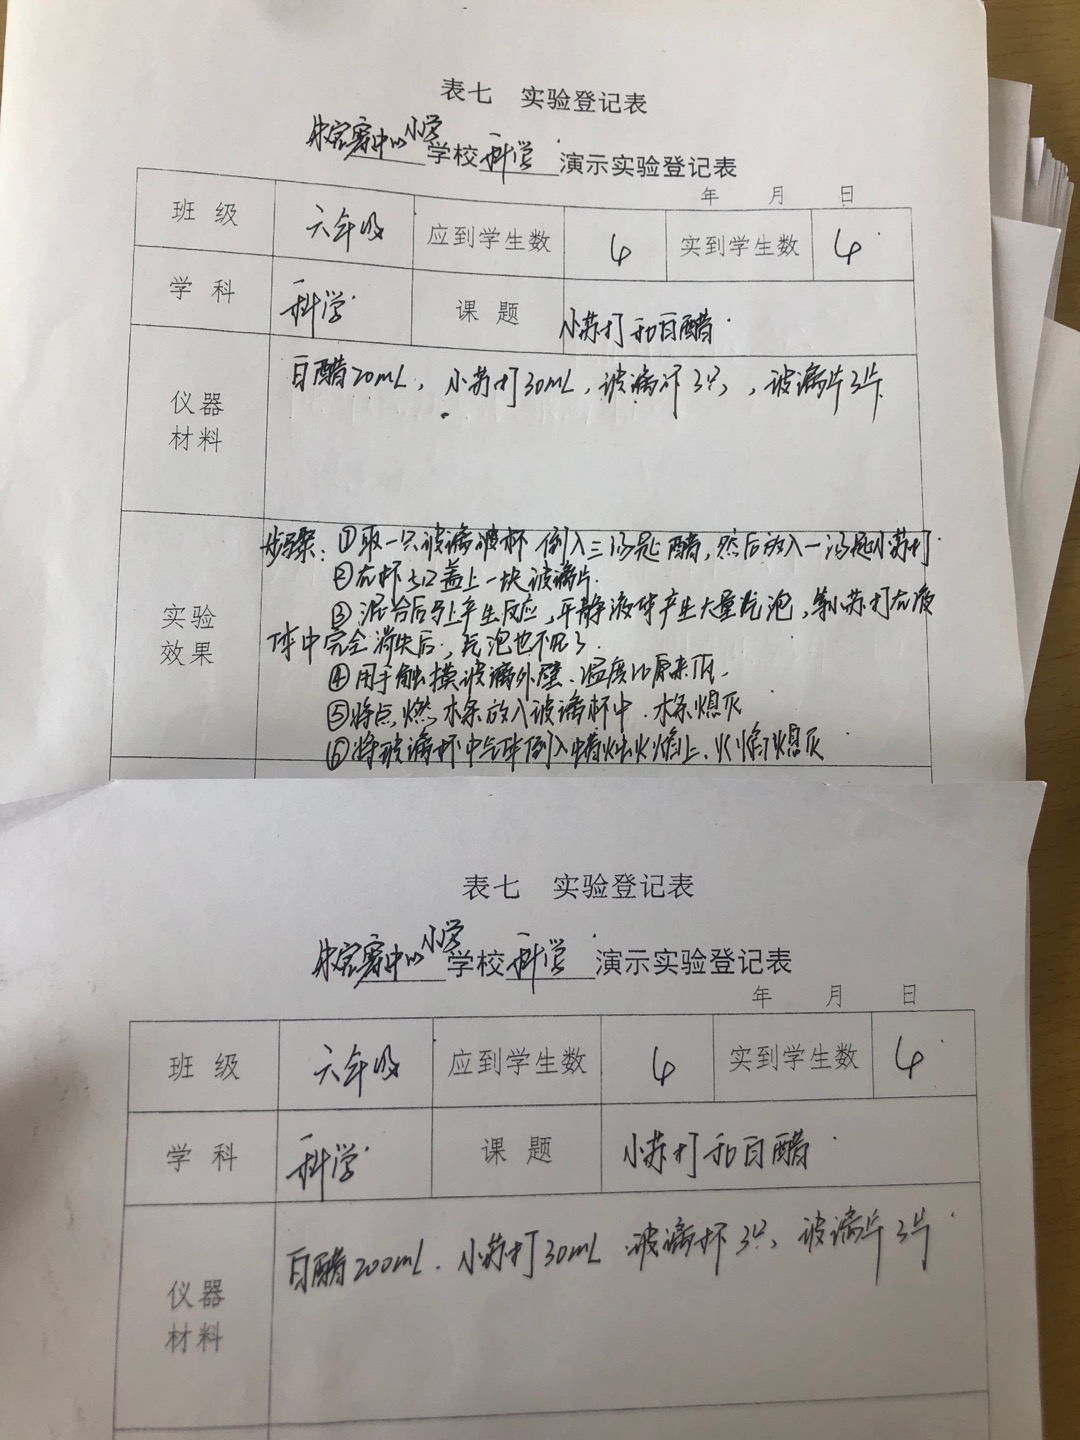 表七 实验登记表
中心小学学校科学演示实验登记表
年 月 日
班 级 六年级 应到学生数 4 实到学生数 4
学 科 科学 课 题 小苏打和白醋
仪器
材料
白醋20mL，小苏打30mL，玻璃杯3只，玻璃片3片
实验
效果
步骤：①取一只玻璃杯 倒入三汤匙醋，然后放入一汤匙小苏打
②在杯口盖上一块玻璃片
③混合后马上产生反应，平静液体产生大量气泡，等小苏打在液
体中完全消失后，气泡也不见了
④用手触摸玻璃外壁、温度比原来低
⑤将点燃木条放入玻璃杯中、木条熄灭
⑥将玻璃杯中气体倒入火焰上、火焰熄灭
表七 实验登记表
中心小学学校科学演示实验登记表
年 月 日
班 级 六年级 应到学生数 4 实到学生数 4
学 科 科学 课 题 小苏打和白醋
仪器
材料
白醋200mL、小苏打30mL 玻璃杯3只、玻璃片3片